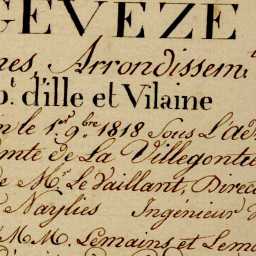 GÉVEZÉ
nes Arrondissem.t
p.t d'ille et Vilaine
le 1.er 9.bre 1818 Sous L'ad
mte de La Villegonte
de M.r Le Vaillant, Direc
Naylies Ingénieur
MM. Lemains et Lema